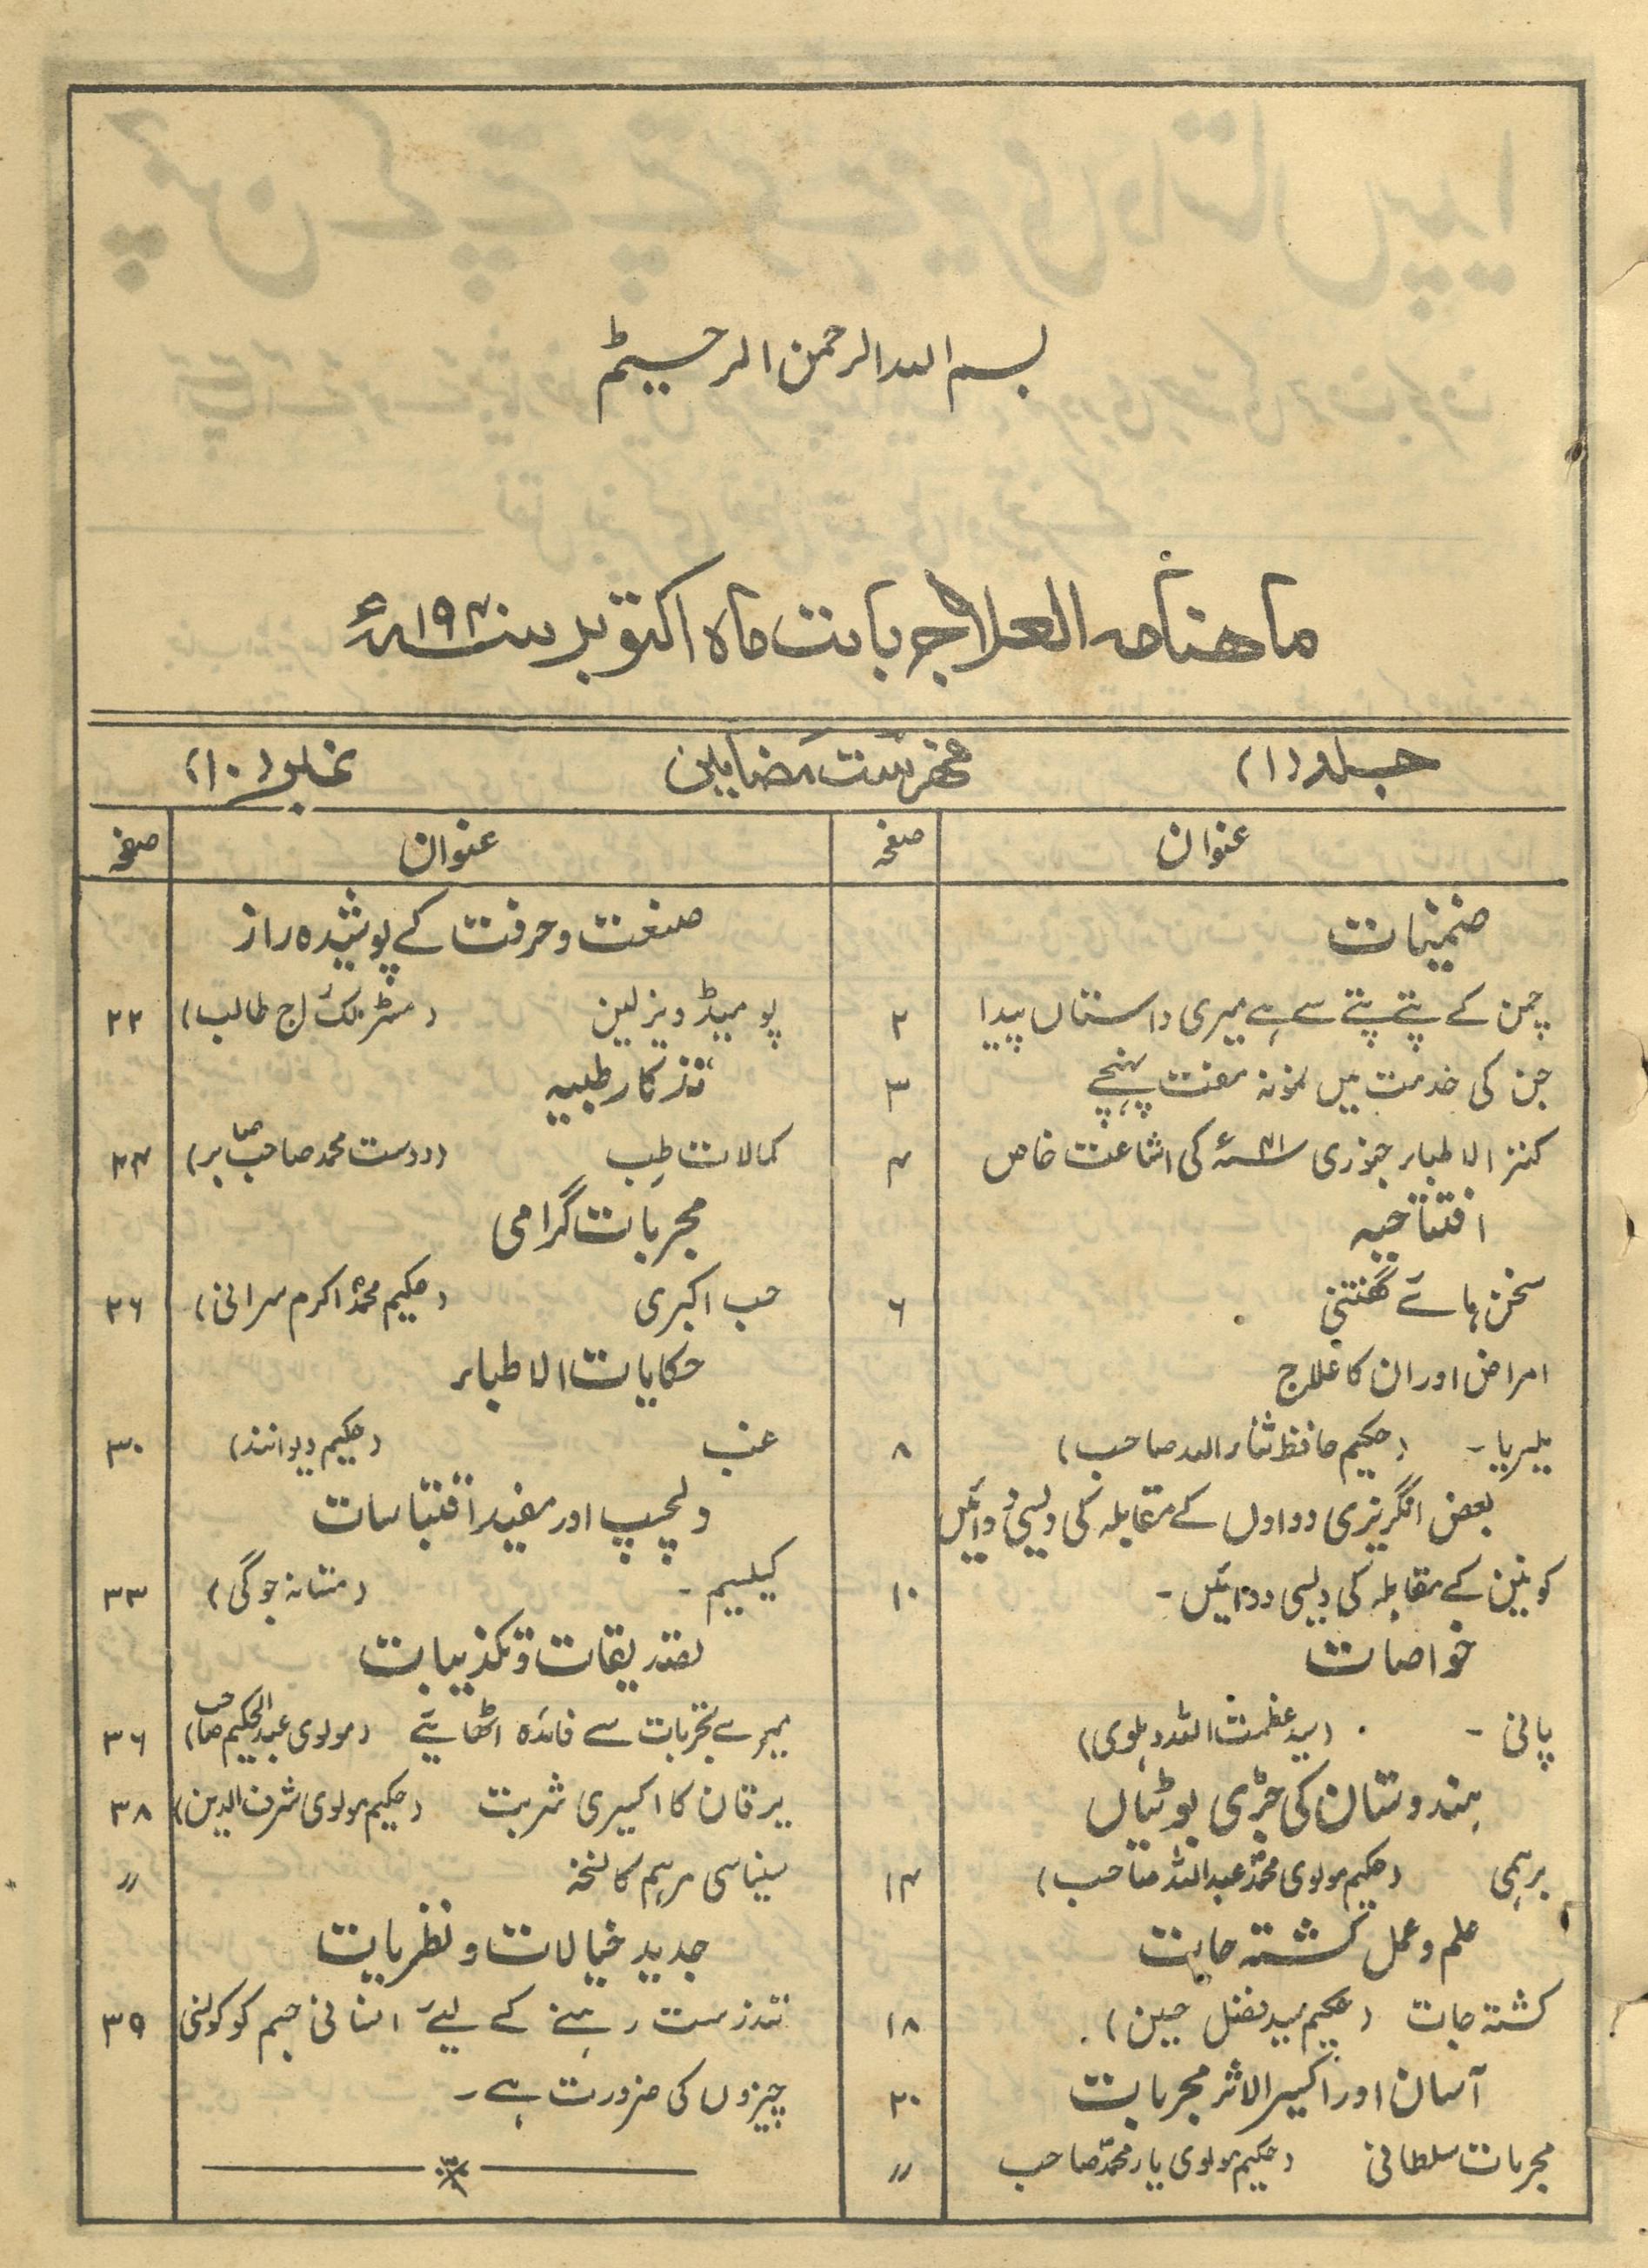 بسم اللہ الرحمن الرحیم
ماھنامہ العلاج بابت ماہ اکتوبر سنہ ۱۹۴۰ء
جلد (۱)
فہرست مضامین
نمبر (۱۰)
عنوان صفحہ
ضمنیات
چمن کے پتے پتے سے ہے میری داستاں پیدا ۲
جن کی خدمت میں نمونہ مفت پہنچے ۳
کنز الاطباء جنوری ۴۱ء کی اشاعت خاص ۴
افتتاحیہ
سخن ہائے گفتنی ۶
امراض اور ان کا علاج
ملیریا۔ (حکیم حافظ ثناء اللہ صاحب) ۸
بعض انگریزی دواوں کے مقابلہ کی دیسی دوائیں
کونین کے مقابلہ کی دیسی دوائیں۔ ۱۰
خواصات
پانی۔ (سید عظمت اللہ دہلوی)
ہندوستان کی جڑی بوٹیاں
برہمی (حکیم مولوی محمد عبداللہ صاحب) ۱۴
علم و عمل کشتہ جات
کشتہ جات (حکیم سید فضل حسین). ۱۸
آسان اور اکسیر الاثر مجربات ۲۰
مجربات سلطانی (حکیم مولوی یار محمد صاحب 〃
عنوان صفحہ
صنعت و حرفت کے پوشیدہ راز
پومیڈ ویزلین (مسٹر ملک راج طالب) ۲۲
تذکار طبیہ
کمالات طب (دوست محمد صاحب صابر) ۲۴
مجربات گرامی
حب اکبری (حکیم محمد اکرم سرانی) ۲۶
حکایات الاطباء
عنب (حکیم دیوانند) ۳۰
دلچسپ اور مفید اقتباسات
کیلسیم۔ (مستانہ جوگی) ۳۳
تصدیقات و تکذیبات
میرے تجربات سے فائدہ اٹھائیے (مولوی عبدالحکیم صاحب) ۳۶
یرقان کا اکسیری شربت (حکیم مولوی شرف الدین) ۳۸
سنیاسی مرہم کا نسخہ 〃
جدید خیالات و نظریات
تندرست رہنے کے لیے انسانی جسم کو کونسی ۳۹
چیزوں کی ضرورت ہے۔